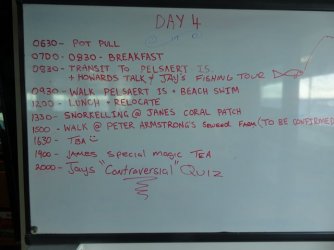 DAY 4
0630- POT PULL
0700- 0830- BREAKFAST
0830- TRANSIT TO PELSAERT IS
+ HOWARDS TALK + JAY'S FISHING TOUR
0930- WALK PELSAERT IS + BEACH SWIM
1200- LUNCH + RELOCATE
1330- SNORKELLING @ JANES CORAL PATCH
1500- WALK @ PETER ARMSTRONG'S FARM (TO BE CONFIRMED
1630- TBA
1900- JAMES SPECIAL MAGIC TEA
2000- Jays "Controversial" QUIZ